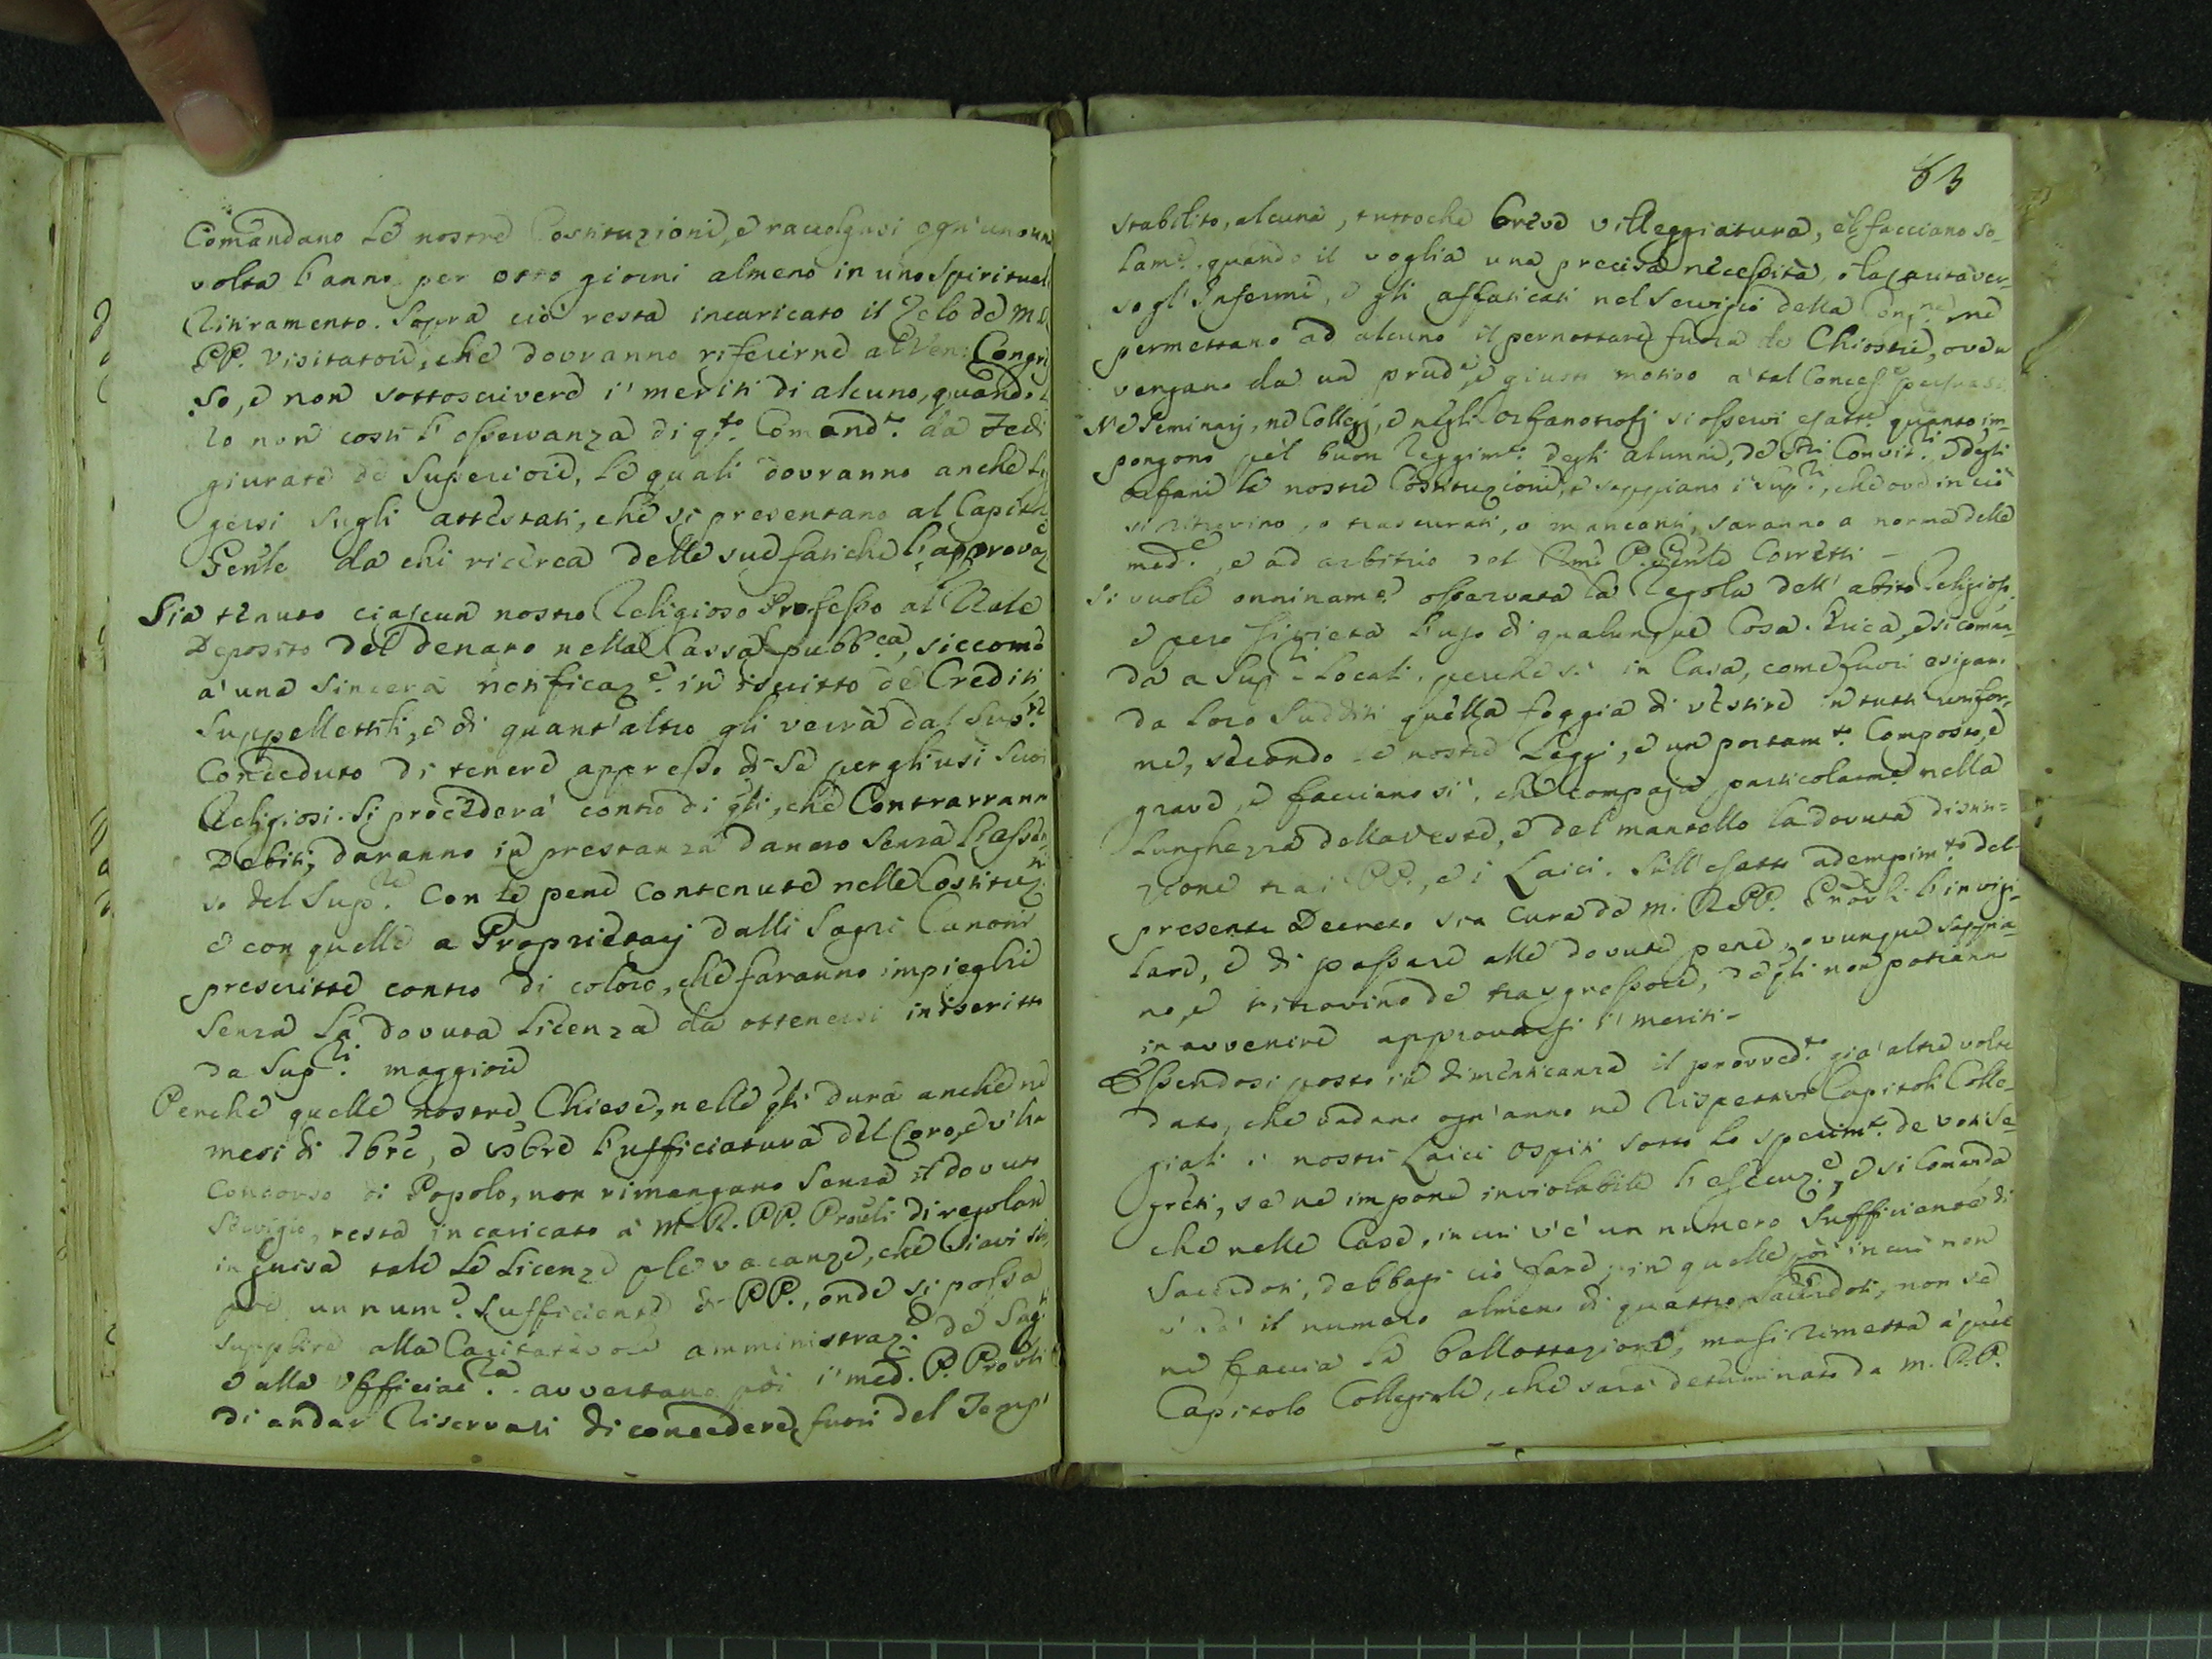 Comandano le nostre Costituzioni, e raccolgasi ogn'uno una
volta l'anno per otto giorni almeno in uno Spiritual
Ritiramento. Sopra ciò resta incaricato il Zelo de M.
PP. Visitatori, che dovranno riferirne al Ven: Congr
so, e non sottoscrivere i meriti di alcuno, quando
lo non costi l'osservanza di q.to Comand.o da Fedi
giurate de Superiori, le quali dovranno anche
gersi sugli attestati, che si presentano al Capit
Gen'le da chi ricerca delle sue fatiche l'approvaz
Sia tenuto ciascun nostro Religioso Professo al Reale
Deposito del denaro nella Cassa pubb.ca, siccome
a una sincera notificaz.e in iscritto de Crediti
Suppellettili, e di quant'altro gli verrà dal Sup.re
Conceduto di tenere appresso di se per gli usi suoi
Religiosi. Si procederà contro di q'li, che Contrarrann
Debiti, daranno in prestanza danaro senza l'assen
so del Sup.re Con le pene contenute nelle Costituz.ni
e con quelle a Proprietarj dalli Sagri Canoni
prescritte contro di coloro, che faranno impieghi
Senza la dovuta licenza da ottenersi in iscritto
da Sup.ri maggiori
Perche quelle nostre Chiese, nelle q'li dura anche ne
mesi di 7bre, e 8bre l'ufficiatura del Coro, e v'ha
Concorso di Popolo, non rimangano senza il dovuto
Servigio, resta incaricato a M. R. PP. Prov'li di regolare
in guisa tale le licenze p le vacanze, che siavi sem
pre un num.o sufficiente di PP., onde si possa
supplire alla Caritatevole amministraz.e de Sag.ti
e alla Ufficiat.ra avvertano poi i med. P. Prov'li
di andar Riservati di concedere, fuori del Temp
63
stabilito, alcuna, tuttoche breve villeggiatura, e'l facciano so-
lam.e quando il voglia una precisa necessità, o la cautaver-
so gl'Infermi, e gli affaticati nel Servigio della Cong.ne, ne
permettano ad alcuno il pernottare fuora de Chiostri, ove n
vengano da un prud.e, e giusto motivo a tal Concess.e persuasi.
Ne Seminarj, ne Collegj, e negli Orfanotrofj si osservi esatt.e quanto im-
pongono pel buon Reggim.o degli alunni, de S.ri Convit.ri, e degli
Orfani le nostre Costituzioni, e sappiano i Sup.ri, che ove in ciò
si ritrovino, o trascurati, o mancanti, saranno a norma delle
med.e, e ad arbitrio del R'mo P. Gen'le Corretti -
Si vuole onninam.e osservata la Regola dell'abito Religioso
e pero si vieta l'uso di qualunque Cosa. Luca, e si coman-
da a Sup.ri Locali, perche si in Casa, come fuori esigano
da loro Sudditi quella foggia di vestire in tutti unifor-
me, secondo le nostre Leggi, e un portam.to Composto, e
grave, e facciano si, che compaja particolarm.e nella
lunghezza della veste, e del mantello la dovuta distin-
zione tra i PP., e i Laici. Sull'esatto adempim.to del
presente Decreto sia cura de M. R. PP. Prov'li l'invigi-
lare, e di passare alle dovute pene, ovunque sappia-
no, e ritrovino de trasgressori, de q'li non potranno
in avvenire approvarsi i meriti -
Essendosi posto in dimenticanza il provved.to già altre volte
dato, che vadano ogn'anno ne Rispettivi Capitoli Colle-
giali i nostri Laici Ospiti sotto lo sperim.to de voti Se-
greti, se ne impone inviolabile l'esecuz.e, e si Comanda
che nelle Case, in cui v'è un numero sufficiente di
Sacerdoti, debbasi ciò fare, in quelle poi in cui non
v'ha il numero almeno di quattro Sacerdoti, non se
ne faccia la ballottazione, ma si rimetta a quel
Capitolo Collegiale, che sarà determinato da M. R.P.